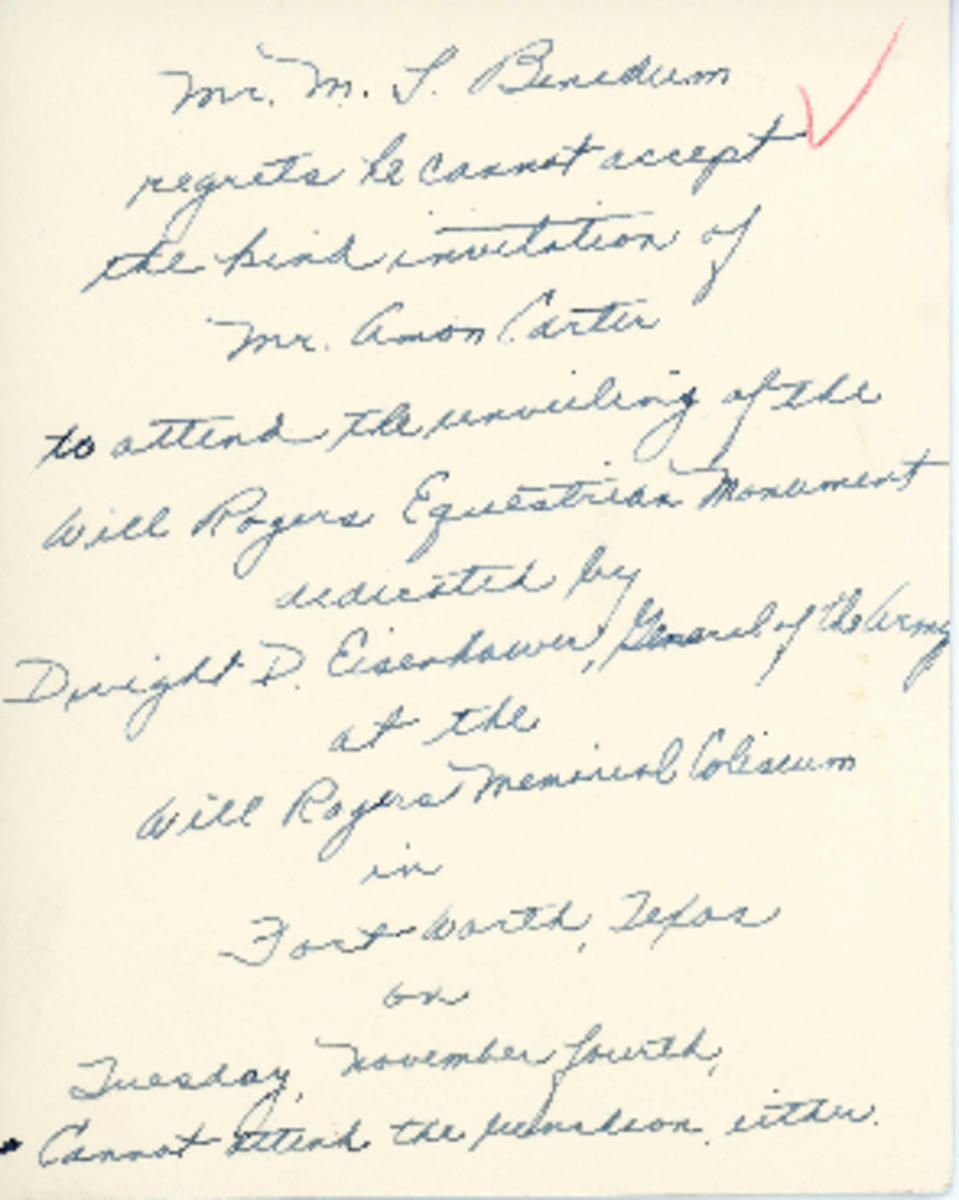 Mr. M. L. Benedum
regrets he cannot accept
the kind invitation of
Mr. Amon Carter
to attend the unveiling of the
Will Rogers Equestrian Monument
dedicated by
Dwight D. Eisenhower, General of the Army
at the
Will Rogers Memorial Coliseum
in
Fort Worth, Texas
on
Tuesday, November fourth,
Cannot attend the luncheon either.